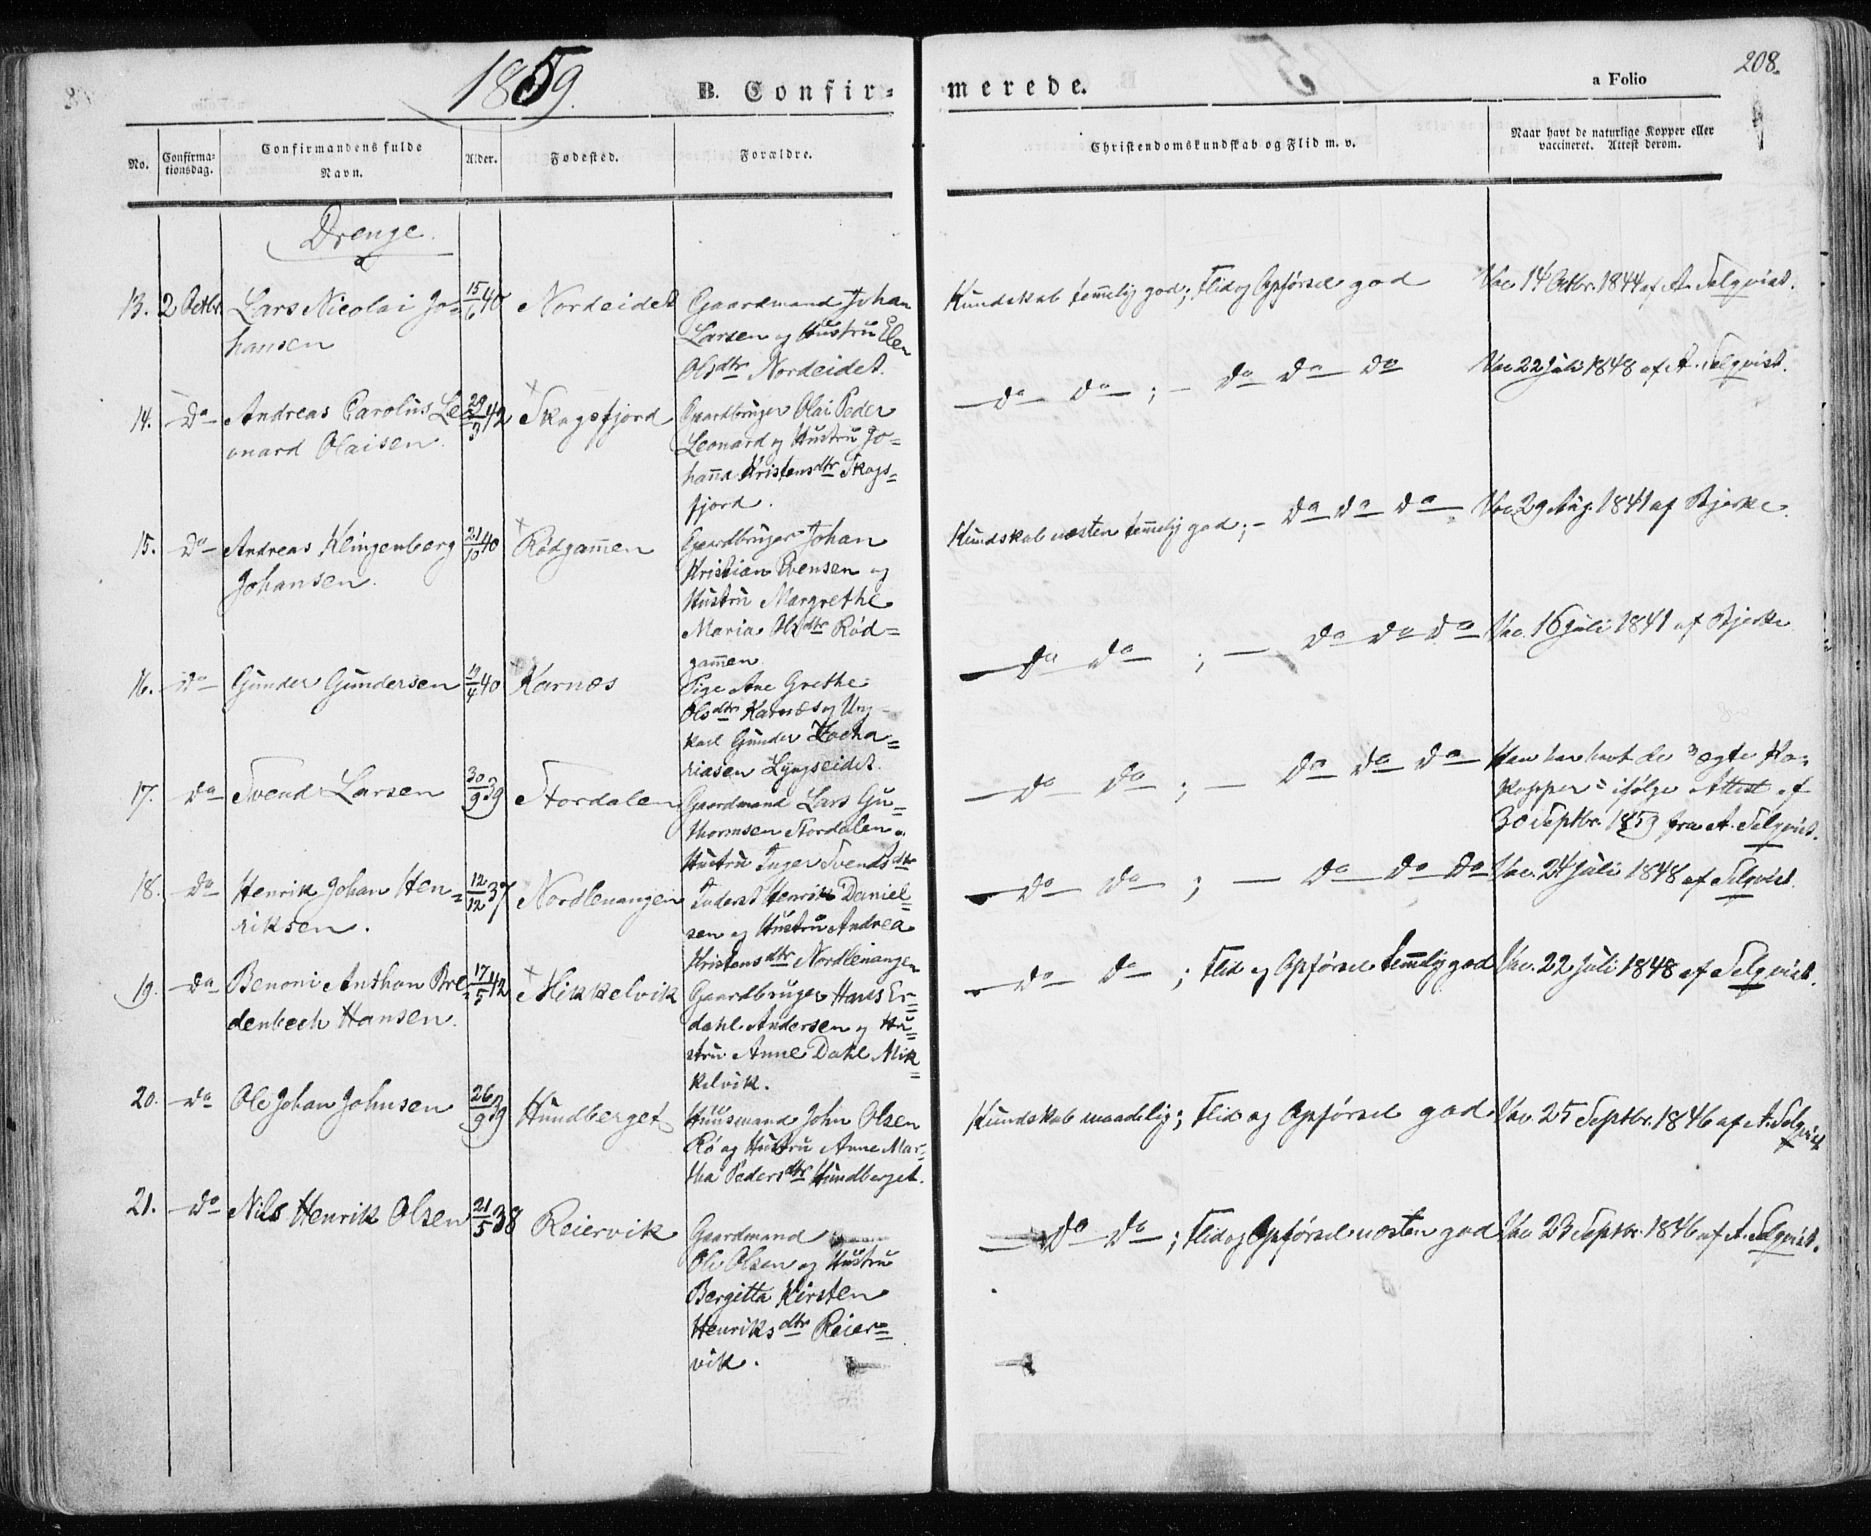 1859.
B. Confir-
merede.
a Folio
208.
No.
Confirma-
tionsdag.
Confirmandens fulde
Navn.
Alder.
Fødested.
Forældre.
Christendomskundskab og Flid m. v.
Naar havt de naturlige Kopper eller
vaccineret. Attest derom.
Drenge.
13. 2 Octbr. Lars Nicolai Jo=
hansen
15/6 40
Nordeidet
Gaardmand Johan
Larsen og Hustru Elen
Olsdtr Nordeidet.
Kundskab temelig god; Flid og Opførsel god
Vac. 14 Octbr. 1844 af A. Selqvist.
14. Do Andreas Carolus Le=
onard Olaisen.
29/3 42
Skogsfjord
Gaardbruger Olai Peder
Leonard og Hustru Jo=
hanna Kristensdtr Skogs=
fjord.
Do Do ; - Do Do Do
Vac 22 Juli 1848 af A. Selqvist.
15. Do Andreas Klingenberg
Johansen.
21/10 40
Rødgammen
Gaardbruger Johan
Kristian Evensen og
Hustru Margrethe
Maria Olsdtr Rød=
gammen
Kundskab næsten temelig god; - Do Do Do
Vac 29 Aug. 1841 af Bjerke.
16. Do Gunder Gundersen
/4 40
Karnæs
Pige Ane Grethe
Olsdtr Karnæs og Ung-
karl Gunder Zacha=
riasen Lyngseidet.
Do Do ; - Do Do Do
Vac. 16 Juli 1841 af Bjerke
17. Do Svend Larsen
30/9 39
Stordalen
Gaardmand Lars Gu=
thormsen Stordalen og
Hustru Inger Svendsdtr
Do Do ; - Do Do Do
Han har havt de ægte Ko=
kopper ifølge Attest af
30 Septbr. 1853 fra A. Selqvist.
18. Do Henrik Johan Hen=
riksen.
12/12 37
Nordlenangen
Inderst Henrik Daniel=
sen og Hustru Andrea
Kristensdtr Nordlenangen
Do Do ; - Do Do Do
Vac. 24 Juli 1848 af Selqvist.
19. Do Benoni Anthon Bre=
denbech Hansen.
17/5 42
Mikkelvik
Gaardbruger Hans Er=
dahl Andersen og Hu=
stru Anne Dahl Mik=
kelvik.
Do Do ; Flid og Opførsel temmelig god
Vac. 22 Juli 1848 af Selqvist.
20. Do Ole Johan Johnsen
26/9 39
Hundberget
Huusmand John Olsen
Rø og Hustru Anne Mar=
tha Pedersdtr Hundberget.
Kundskab maadelig; Flid og Opførsel god
Vac. 25 Septbr. 1846 af A. Selqvist
21. Do Nils Henrik Olsen
21/5 38
Reiervik
Gaardmand
Ole Olsen og Hustru
Bergitta Kirsten
Henriksdtr Reier=
vik.
Do Do ; Flid og Opførsel næsten god
Vac 23 Septbr. 1846 af A. Selqvist.